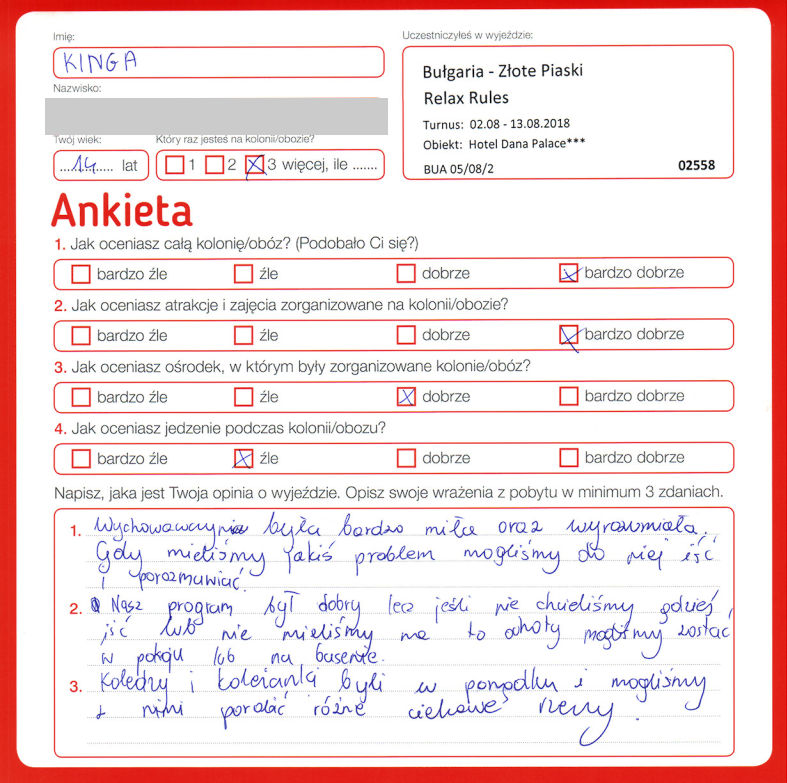 Imię:
KINGA
Nazwisko:
Twój wiek:
14 lat
Który raz jesteś na kolonii/obozie?
1 2 3 więcej, ile .......
Uczestniczyłeś w wyjeździe:
Bułgaria - Złote Piaski
Relax Rules
Turnus: 02.08 - 13.08.2018
Obiekt: Hotel Dana Palace***
BUA 05/08/2 02558
Ankieta
1. Jak oceniasz całą kolonię/obóz? (Podobało Ci się?)
bardzo źle źle dobrze bardzo dobrze
2. Jak oceniasz atrakcje i zajęcia zorganizowane na kolonii/obozie?
bardzo źle źle dobrze bardzo dobrze
3. Jak oceniasz ośrodek, w którym były zorganizowane kolonie/obóz?
bardzo źle źle dobrze bardzo dobrze
4. Jak oceniasz jedzenie podczas kolonii/obozu?
bardzo źle źle dobrze bardzo dobrze
Napisz, jaka jest Twoja opinia o wyjeździe. Opisz swoje wrażenia z pobytu w minimum 3 zdaniach.
1. była bardzo miła oraz wyrozumiała.
Gdy mieliśmy jakiś problem mogliśmy do niej iść
i porozmawiać.
2. Nasz program był dobry lecz jeśli nie chcieliśmy gdzieś
iść lub nie mieliśmy na to ochoty mogliśmy zostać
w pokoju lub na basenie.
3. Koledzy i koleżanki byli w porządku i mogliśmy
z nimi porobić różne ciekawe rzeczy.